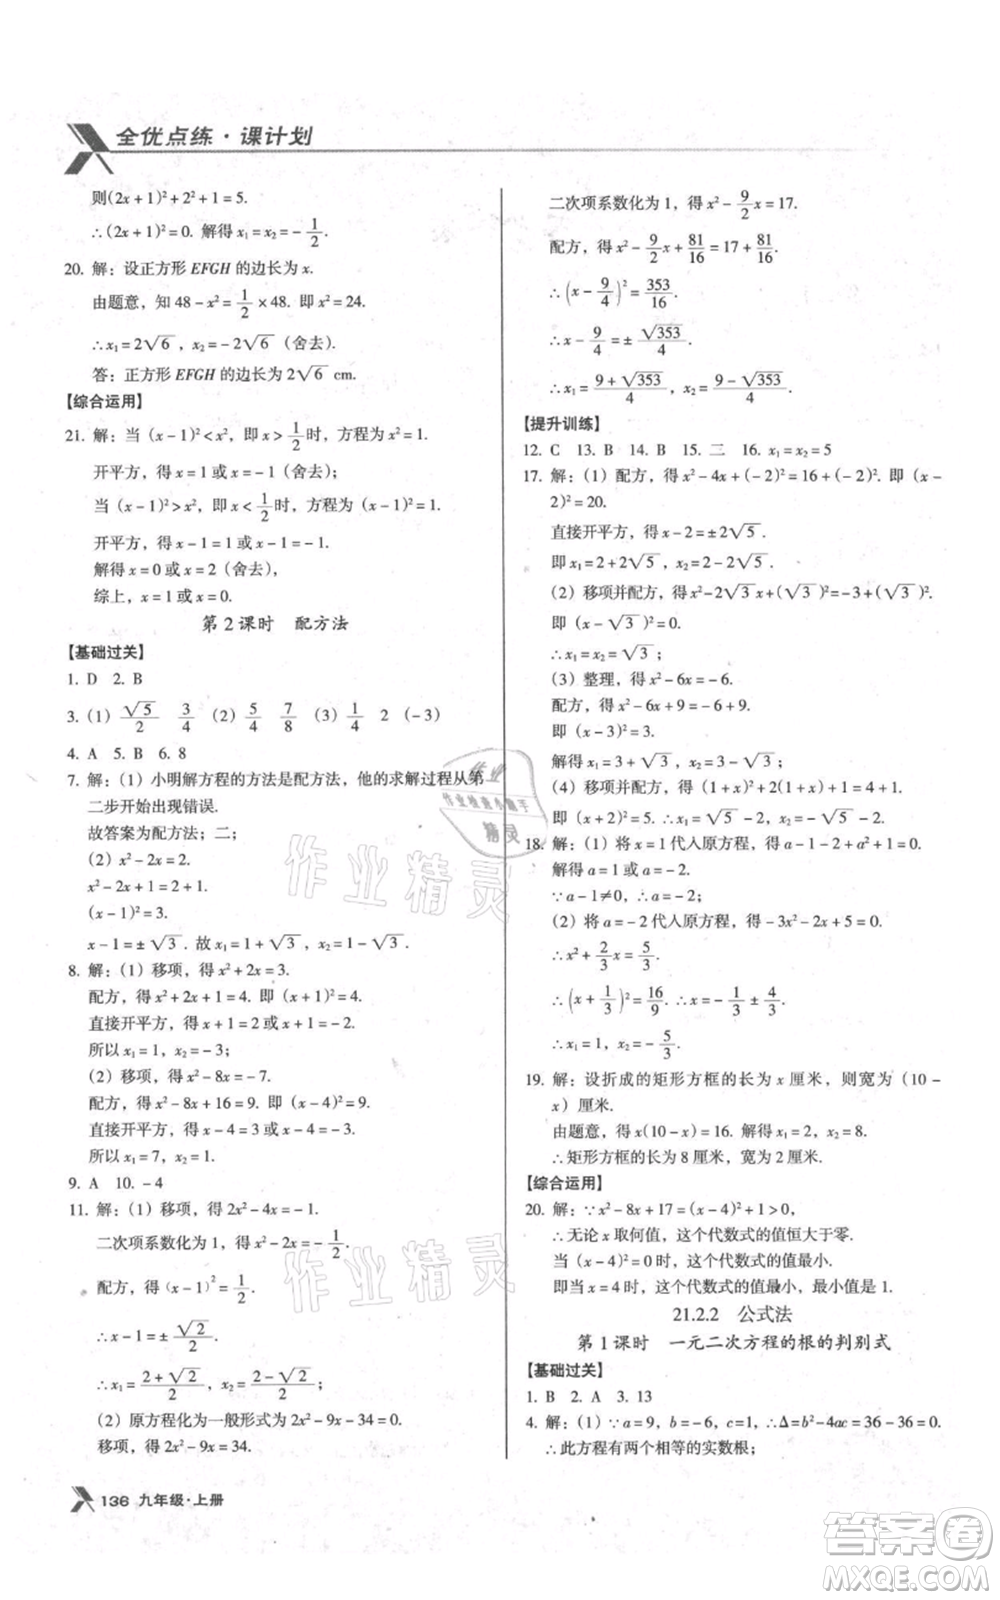 全优点练·课计划
则(2x+1)²+2²+1=5.
∴(2x+1)²=0. 解得 x₁=x₂=-1/2.
20. 解：设正方形 EFGH 的边长为 x.
由题意，知 48-x²=1/2×48. 即 x²=24.
∴x₁=2√6，x₂=-2√6（舍去）.
答：正方形 EFGH 的边长为 2√6 cm.
【综合运用】
21. 解：当（x-1）²<x²，即 x>1/2时，方程为 x²=1.
开平方，得 x=1 或 x=-1（舍去）；
当（x-1）²>x²，即 x<1/2时，方程为（x-1）²=1.
开平方，得 x-1=1 或 x-1=-1.
解得 x=0 或 x=2（舍去），
综上，x=1 或 x=0.
第 2 课时 配方法
【基础过关】
1. D 2. B
3. (1) √5/2 3/4 (2) 5/4 7/8 (3) 1/4 2 (-3)
4. A 5. B 6. 8
7. 解：(1) 小明解方程的方法是配方法，他的求解过程从第
二步开始出现错误.
故答案为配方法；二；
(2) x²-2x=2.
x²-2x+1=2+1.
(x-1)²=3.
x-1=±√3. 故 x₁=1+√3，x₂=1-√3.
8. 解：(1) 移项，得 x²+2x=3.
配方，得 x²+2x+1=4. 即（x+1）²=4.
直接开平方，得 x+1=2 或 x+1=-2.
所以 x₁=1，x₂=-3；
(2) 移项，得 x²-8x=-7.
配方，得 x²-8x+16=9. 即（x-4）²=9.
直接开平方，得 x-4=3 或 x-4=-3.
所以 x₁=7，x₂=1.
9. A 10. -4
11. 解：(1) 移项，得 2x²-4x=-1.
二次项系数化为 1，得 x²-2x=-1/2.
配方，得（x-1）²=1/2.
∴x-1=±√2/2.
∴x₁=(2+√2)/2，x₂=(2-√2)/2；
(2) 原方程化为一般形式为 2x²-9x-34=0.
移项，得 2x²-9x=34.
二次项系数化为 1，得 x²-9/2x=17.
配方，得 x²-9/2x+81/16=17+81/16.
∴(x-9/4)²=353/16.
∴x-9/4=±√353/4.
∴x₁=(9+√353)/4，x₂=(9-√353)/4.
【提升训练】
12. C 13. B 14. B 15. 二 16. x₁=x₂=5
17. 解：(1) 配方，得 x²-4x+(-2)²=16+(-2)². 即（x-
2)²=20.
直接开平方，得 x-2=±2√5.
即 x₁=2+2√5，x₂=2-2√5.
(2) 移项并配方，得 x²-2√3x+(√3)²=-3+(√3)².
即（x-√3）²=0.
∴x₁=x₂=√3；
(3) 整理，得 x²-6x=-6.
配方，得 x²-6x+9=-6+9.
即（x-3）²=3.
解得 x₁=3+√3，x₂=3-√3；
(4) 移项并配方，得（1+x）²+2（1+x）+1=4+1.
即（x+2）²=5. ∴x₁=-2+√5，x₂=-2-√5.
18. 解：(1) 将 x=1 代入原方程，得 a-1-2+a²+1=0.
解得 a=1 或 a=-2.
∵a-1≠0，∴a=-2；
(2) 将 a=-2 代人原方程，得 -3x²-2x+5=0.
∴x²+2/3x=5/3.
∴(x+1/3)²=16/9. ∴x=-1/3±4/3.
∴x₁=1，x₂=-5/3.
19. 解：设折成的矩形方框的长为 x 厘米，则宽为（10-
x）厘米.
由题意，得 x(10-x)=16. 解得 x₁=2，x₂=8.
∴矩形方框的长为 8 厘米，宽为 2 厘米.
【综合运用】
20. 解：∵x²-8x+17=(x-4)²+1>0，
∴无论 x 取何值，这个代数式的值恒大于零.
当（x-4）=0 时，这个代数式的值最小.
即当 x=4 时，这个代数式的值最小，最小值是 1.
21.2.2 公式法
第 1 课时 一元二次方程的根的判别式
【基础过关】
1. B 2. A 3. 13
4. 解：(1) ∵a=9，b=-6，c=1，∴Δ=b²-4ac=36-36=0.
∴此方程有两个相等的实数根；
136 九年级·上册
作业精灵
作业检查小助手
作业精灵
作业精灵
答案圈